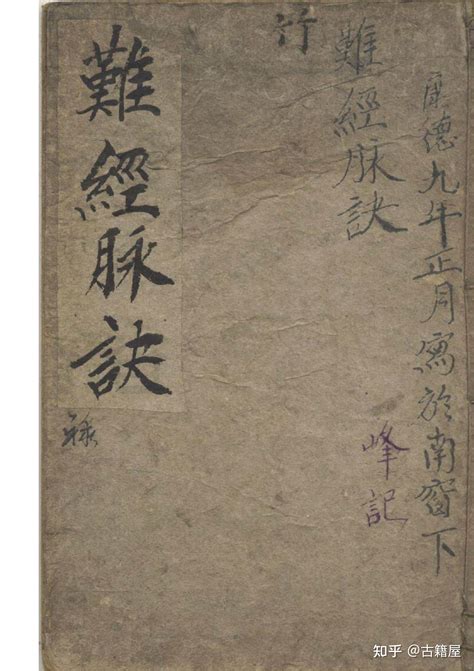 康德九年正月寫於南窗下
峰記
難經脉訣
竹
難經脉訣
知乎 @古籍屋